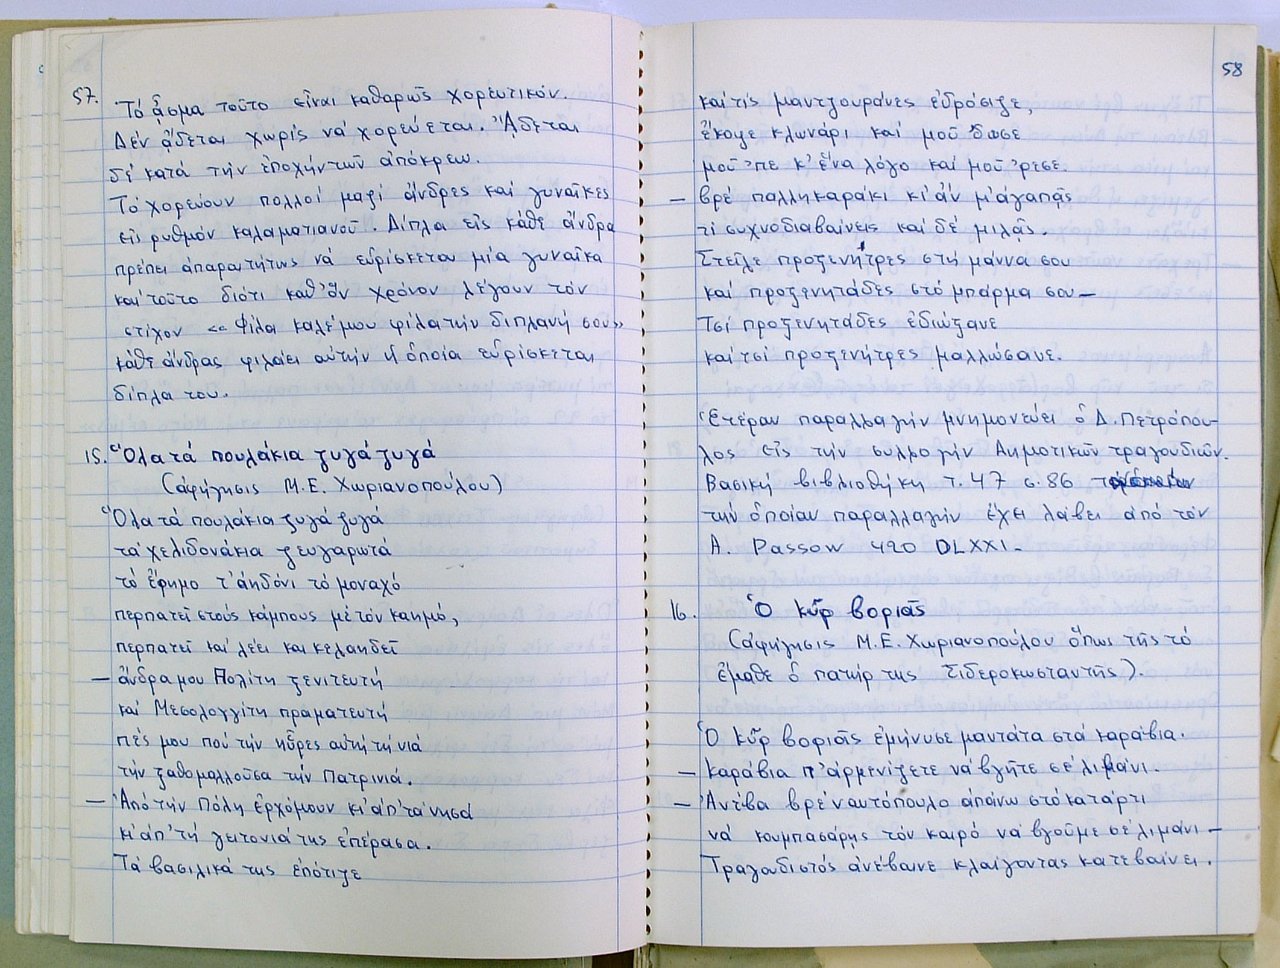 57.
Τό ᾆσμα τοῦτο εἶναι καθαρῶς χορευτικόν.
Δέν ᾄδεται χωρίς νά χορεύεται. Ἄδεται
δέ κατά τήν ἐποχήν τῶν ἀπόκρεω.
Τό χορεύουν πολλοί μαζί ἄνδρες καί γυναῖκες
εἰς ρυθμόν καλαματιανοῦ. Δίπλα εἰς κάθε ἄνδρα
πρέπει ἀπαραιτήτως νά εὑρίσκεται μία γυναῖκα
καί τοῦτο διότι καθ' ὅν χρόνον λέγουν τόν
στίχον «Φίλα καλέ μου φίλα τήν διπλανή σου»
κάθε ἄνδρας φιλάει αὐτήν ἡ ὁποία εὑρίσκεται
δίπλα του.
15. Ὅλα τά πουλάκια ζυγά ζυγά
(ἀφήγησις Μ.Ε. Χωριανοπούλου)
Ὅλα τά πουλάκια ζυγά ζυγά
τά χελιδονάκια ζευγαρωτά
τό ἔρημο τ' ἀηδόνι τό μοναχό
περπατεῖ στούς κάμπους μέ τόν καημό,
περπατεῖ καί λέει καί κελαηδεῖ
— ἄνδρα μου Πολίτη ξενιτευτή
καί Μεσολογγίτη πραματευτή
πές μου πού τήν ηὗρες αὐτή τή νιά
τήν ξαθομαλλοῦσα τήν Πατρινιά.
— Ἀπό τήν Πόλη ἐρχόμουν κι' ἀπ' τά νησά
κι' ἀπ' τή γειτονιά της ἐπέρασα.
Τά βασιλικά της ἐπότιζε
58
καί τίς μαντζουράνες ἐδρόσιζε,
ἔκοψε κλωνάρι καί μοῦ 'δωσε
μοῦ 'πε κ' ἕνα λόγο καί μοῦ 'ρεσε.
— βρέ παλληκαράκι κι' ἄν μ' ἀγαπᾷς
τί συχνοδιαβαίνεις καί δέ μιλᾷς.
Στεῖλε προξενήτρες στή μάννα σου
καί προξενητάδες στό μπάρμα σου —
Τσί προξενητάδες ἐδιώξανε
καί τσί προξενήτρες μαλλώσανε.
Ἑτέραν παραλλαγήν μνημονεύει ὁ Δ. Πετρόπου-
λος εἰς τήν συλλογήν Δημοτικῶν τραγουδιῶν.
Βασική βιβλιοθήκη τ. 47 σ. 86
τήν ὁποίαν παραλλαγήν ἔχει λάβει ἀπό τόν
Α. Passow 420 DLXXI.
16. Ὁ κῦρ βοριᾶς
(ἀφήγησις Μ.Ε. Χωριανοπούλου ὅπως τῆς τό
ἔμαθε ὁ πατήρ της Σιδεροκωσταντῆς).
Ὁ κῦρ βοριᾶς ἐμήνυσε μαντάτα στά καράβια.
— Καράβια π' ἀρμενίζετε νά βγῆτε σέ λιμάνι.
— Ἀνέβα βρέ ναυτόπουλο ἀπάνω στό κατάρτι
νά κουμπασάρης τόν καιρό νά βγοῦμε σέ λιμάνι —
Τραγωδιστός ἀνέβαινε κλαίγοντας κατεβαίνει.